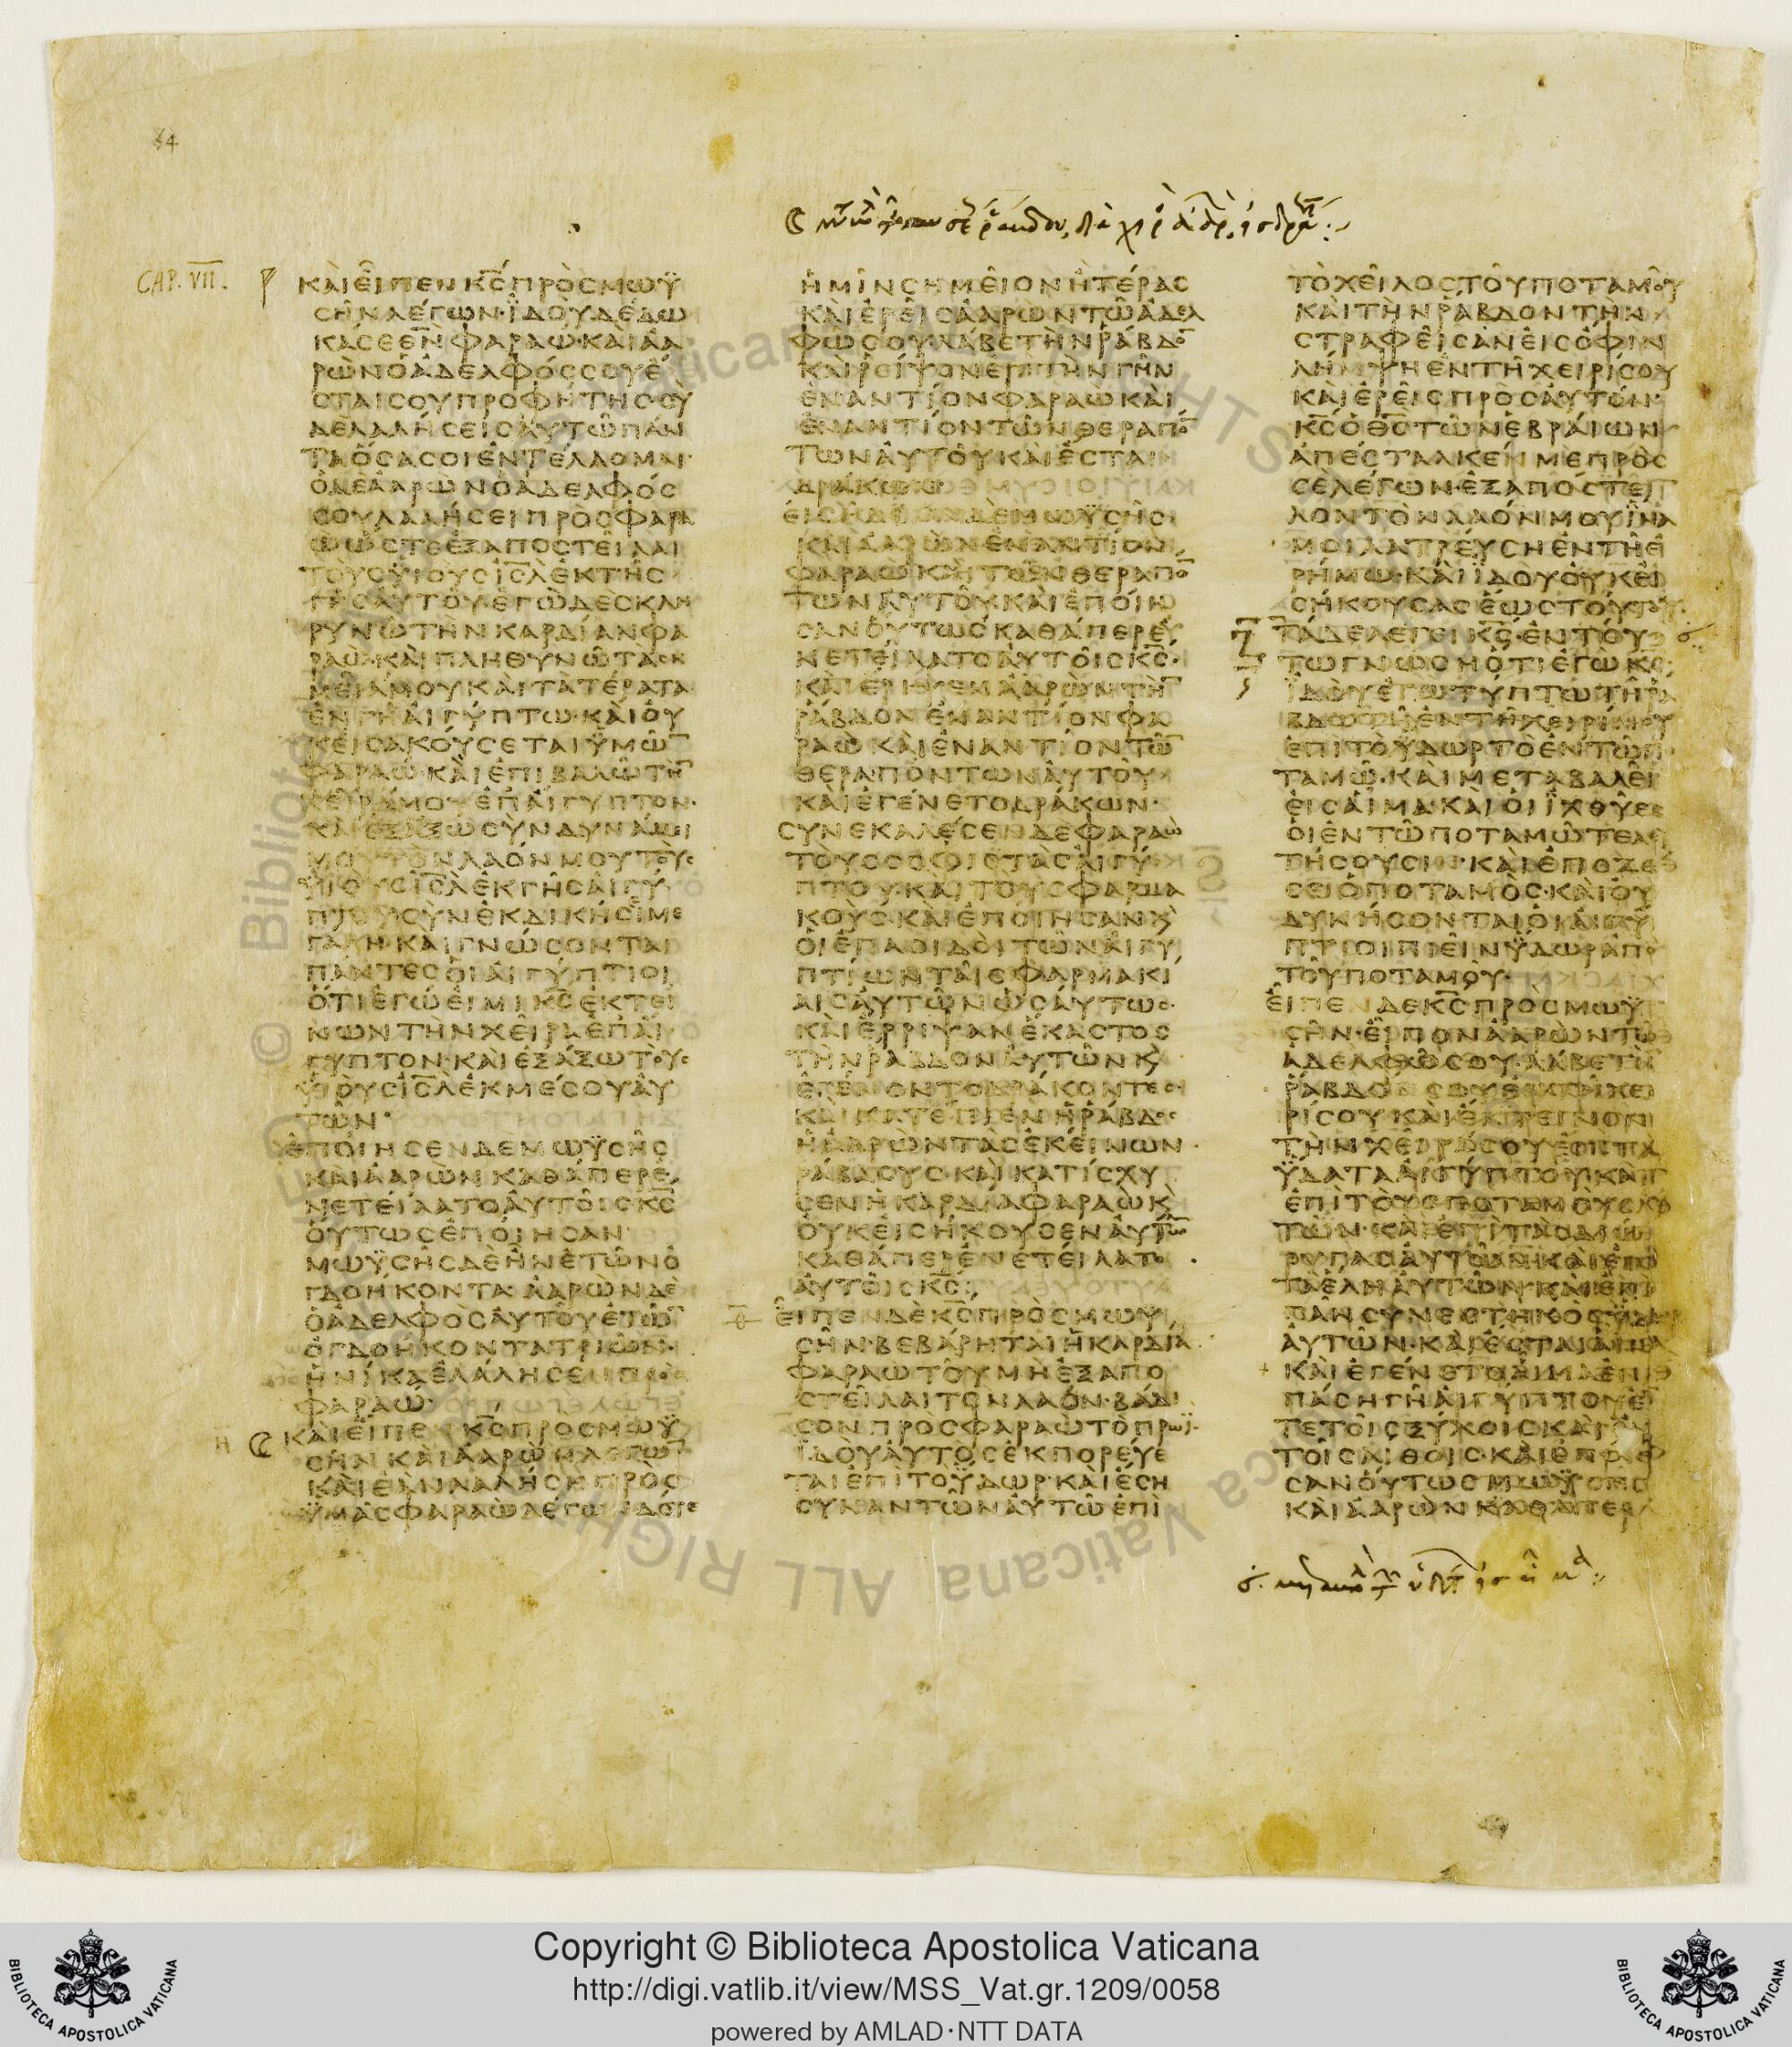 54
CAP. VII.
ΚΑΙΕΙΠΕΝΚ̅Ϲ̅ΠΡΟϹΜΩΫ
ϹΗΝΛΕΓΩΝ·ΪΔΟΥΔΕΔΩ
ΚΑϹΕΕΝΦΑΡΑΩ·ΚΑΙΑΑ
ΡΩΝΟΑΔΕΛΦΟϹϹΟΥΕ
ϹΤΑΙϹΟΥΠΡΟΦΗΤΗϹϹΥ
ΔΕΛΑΛΗϹΕΙϹΑΥΤΩΠΑΝ
ΤΑΟϹΑϹΟΙΕΝΤΕΛΛΟΜΑΙ·
ΟΔΕΑΑΡΩΝΟΑΔΕΛΦΟϹ
ϹΟΥΛΑΛΗϹΕΙΠΡΟϹΦΑΡΑ
ΩΩϹΤΕΕΞΑΠΟϹΤΕΙΛΑΙ
ΤΟΥϹΥΙΟΥϹΙ̅Ϲ̅Λ̅ΕΚΤΗϹ
ΓΗϹΑΥΤΟΥ·ΕΓΩΔΕϹΚΛΗ
ΡΥΝΩΤΗΝΚΑΡΔΙΑΝΦΑ
ΡΑΩ·ΚΑΙΠΛΗΘΥΝΩΤΑϹΗ
ΜΕΙΑΜΟΥΚΑΙΤΑΤΕΡΑΤΑ
ΕΝΓΗΑΙΓΥΠΤΩ·ΚΑΙΟΥ
ΚΕΙϹΑΚΟΥϹΕΤΑΙΫΜΩ̅
ΦΑΡΑΩ·ΚΑΙΕΠΙΒΑΛΩΤΗ̅
ΧΕΙΡΑΜΟΥΕΠΑΙΓΥΠΤΟΝ·
ΚΑΙΕΞΑΞΩϹΥΝΔΥΝΑΜΙ
ΜΟΥΤΟΝΛΑΟΝΜΟΥΤΟΥϹ
ΥΙΟΥϹΙ̅Ϲ̅Λ̅ΕΚΓΗϹΑΙΓΥ
ΠΤΟΥϹΥΝΕΚΔΙΚΗϹΙΜΕ
ΓΑΛΗ·ΚΑΙΓΝΩϹΟΝΤΑΙ
ΠΑΝΤΕϹΟΙΑΙΓΥΠΤΙΟΙ
ΟΤΙΕΓΩΕΙΜΙΚ̅Ϲ̅ΕΚΤΕΙ
ΝΩΝΤΗΝΧΕΙΡΑΕΠΑΙ
ΓΥΠΤΟΝ·ΚΑΙΕΞΑΞΩΤΟΥϹ
ΥΙΟΥϹΙ̅Ϲ̅Λ̅ΕΚΜΕϹΟΥΑΥ
ΤΩΝ·
ΕΠΟΙΗϹΕΝΔΕΜΩΫϹΗϹ
ΚΑΙΑΑΡΩΝΚΑΘΑΠΕΡΕ
ΝΕΤΕΙΛΑΤΟΑΥΤΟΙϹΚ̅Ϲ̅
ΟΥΤΩϹΕΠΟΙΗϹΑΝ
ΜΩΫϹΗϹΔΕΗΝΕΤΩΝΟ
ΓΔΟΗΚΟΝΤΑ·ΑΑΡΩΝΔΕ
ΟΑΔΕΛΦΟϹΑΥΤΟΥΕΤΩ̅
ΟΓΔΟΗΚΟΝΤΑΤΡΙΩΝ·
ΗΝΙΚΑΕΛΑΛΗϹΕΝΠΡΟϹ
ΦΑΡΑΩ·
ΚΑΙΕΙΠΕΝΚ̅Ϲ̅ΠΡΟϹΜΩΫ
ϹΗΝΚΑΙΑΑΡΩΝΛΕΓΩ̅
ΚΑΙΕΑΝΛΑΛΗϹΗΠΡΟϹ
ΫΜΑϹΦΑΡΑΩΛΕΓΩΝΔΟΤΕ
ΗΜΙΝϹΗΜΕΙΟΝΗΤΕΡΑϹ
ΚΑΙΕΡΕΙϹΑΑΡΩΝΤΩΑΔΕΛ
ΦΩϹΟΥΛΑΒΕΤΗΝΡΑΒΔΟ̅
ΚΑΙΡΕΙΨΟΝΕΠΙΤΗΝΓΗΝ
ΕΝΑΝΤΙΟΝΦΑΡΑΩΚΑΙ
ΕΝΑΝΤΙΟΝΤΩΝΘΕΡΑΠΟ̅
ΤΩΝΑΥΤΟΥΚΑΙΕϹΤΑΙ
ΔΡΑΚΩΝ
ΕΙϹΗΛΘΕΝΔΕΜΩΫϹΗϹ
ΚΑΙΑΑΡΩΝΕΝΑΝΤΙΟΝ
ΦΑΡΑΩΚΑΙΤΩΝΘΕΡΑΠΟ̅
ΤΩΝΑΥΤΟΥΚΑΙΕΠΟΙΗ
ϹΑΝΟΥΤΩϹΚΑΘΑΠΕΡΕ
ΝΕΤΕΙΛΑΤΟΑΥΤΟΙϹΚ̅Ϲ̅·
ΚΑΙΕΡΙΨΕΝΑΑΡΩΝΤΗ̅
ΡΑΒΔΟΝΕΝΑΝΤΙΟΝΦΑ
ΡΑΩΚΑΙΕΝΑΝΤΙΟΝΤΩ̅
ΘΕΡΑΠΟΝΤΩΝΑΥΤΟΥ
ΚΑΙΕΓΕΝΕΤΟΔΡΑΚΩΝ·
ϹΥΝΕΚΑΛΕϹΕΝΔΕΦΑΡΑΩ
ΤΟΥϹϹΟΦΙϹΤΑϹΑΙΓΥ
ΠΤΟΥ·ΚΑΙΤΟΥϹΦΑΡΜΑ
ΚΟΥϹ·ΚΑΙΕΠΟΙΗϹΑΝΚ̀
ΟΙΕΠΑΟΙΔΟΙΤΩΝΑΙΓΥ
ΠΤΙΩΝΤΑΙϹΦΑΡΜΑΚΙ
ΑΙϹΑΥΤΩΝΩϹΑΥΤΩϹ·
ΚΑΙΕΡΡΙΨΑΝΕΚΑϹΤΟϹ
ΤΗΝΡΑΒΔΟΝΑΥΤΩΝΚ̀
ΕΓΕΝΟΝΤΟΔΡΑΚΟΝΤΕϹ·
ΚΑΙΚΑΤΕΠΙΕΝΗΡΑΒΔΟϹ
ΗΑΑΡΩΝΤΑϹΕΚΕΙΝΩΝ
ΡΑΒΔΟΥϹ·ΚΑΙΚΑΤΙϹΧΥ
ϹΕΝΗΚΑΡΔΙΑΦΑΡΑΩΚ̀
ΟΥΚΕΙϹΗΚΟΥϹΕΝΑΥΤΩ̅
ΚΑΘΑΠΕΡΕΝΕΤΕΙΛΑΤΟ
ΑΥΤΟΙϹΚ̅Ϲ̅:
ΕΙΠΕΝΔΕΚ̅Ϲ̅ΠΡΟϹΜΩΫ
ϹΗΝ·ΒΕΒΑΡΗΤΑΙΗΚΑΡΔΙΑ
ΦΑΡΑΩΤΟΥΜΗΕΞΑΠΟ
ϹΤΕΙΛΑΙΤΟΝΛΑΟΝ·ΒΑΔΙ
ϹΟΝΠΡΟϹΦΑΡΑΩΤΟΠΡΩΪ·
ΪΔΟΥΑΥΤΟϹΕΚΠΟΡΕΥΕ
ΤΑΙΕΠΙΤΟΫΔΩΡ·ΚΑΙΕϹΗ
ϹΥΝΑΝΤΩΝΑΥΤΩΕΠΙ
ΤΟΧΕΙΛΟϹΤΟΥΠΟΤΑΜΟΥ
ΚΑΙΤΗΝΡΑΒΔΟΝΤΗΝ
ϹΤΡΑΦΕΙϹΑΝΕΙϹΟΦΙΝ
ΛΗΜΨΗΕΝΤΗΧΕΙΡΙϹΟΥ
ΚΑΙΕΡΕΙϹΠΡΟϹΑΥΤΟΝ·
Κ̅Ϲ̅ΟΘ̅Ϲ̅ΤΩΝΕΒΡΑΙΩΝ
ΑΠΕϹΤΑΛΚΕΝΜΕΠΡΟϹ
ϹΕΛΕΓΩΝ·ΕΞΑΠΟϹΤΕΙ
ΛΟΝΤΟΝΛΑΟΝΜΟΥΪΝΑ
ΜΟΙΛΑΤΡΕΥϹΗΕΝΤΗΕ
ΡΗΜΩ·ΚΑΙΪΔΟΥΟΥΚΕΙ
ϹΗΚΟΥϹΑϹΕΩϹΤΟΥΤΟΥ·
ΤΑΔΕΛΕΓΕΙΚ̅Ϲ̅·ΕΝΤΟΥ
ΤΩΓΝΩϹΗΟΤΙΕΓΩΚ̅Ϲ̅·
ΪΔΟΥΕΓΩΤΥΠΤΩΤΗΡΑ
ΒΔΩΤΗΕΝΤΗΧΕΙΡΙΜΟΥ
ΕΠΙΤΟΫΔΩΡΤΟΕΝΤΩΠΟ
ΤΑΜΩ·ΚΑΙΜΕΤΑΒΑΛΕΙ
ΕΙϹΑΙΜΑ·ΚΑΙΟΙΪΧΘΥΕϹ
ΟΙΕΝΤΩΠΟΤΑΜΩΤΕΛΕΥ
ΤΗϹΟΥϹΙΝ·ΚΑΙΕΠΟΖΕ
ϹΕΙΟΠΟΤΑΜΟϹ·ΚΑΙΟΥ
ΔΥΝΗϹΟΝΤΑΙΟΙΑΙΓΥ
ΠΤΙΟΙΠΙΕΙΝΫΔΩΡΑΠΟ
ΤΟΥΠΟΤΑΜΟΥ·
ΕΙΠΕΝΔΕΚ̅Ϲ̅ΠΡΟϹΜΩΫ
ϹΗΝ·ΕΙΠΟΝΑΑΡΩΝΤΩ
ΑΔΕΛΦΩϹΟΥ·ΛΑΒΕΤΗ̅
ΡΑΒΔΟΝϹΟΥΕΝΤΗΧΕΙ
ΡΙϹΟΥΚΑΙΕΚΤΕΙΝΟΝ
ΤΗΝΧΕΙΡΑϹΟΥΕΠΙΤΑ
ΫΔΑΤΑΑΙΓΥΠΤΟΥ·ΚΑΙ
ΕΠΙΤΟΥϹΠΟΤΑΜΟΥϹΑΥ
ΤΩΝ·ΚΑΙΕΠΙΤΑϹΔΙΩ
ΡΥΓΑϹΑΥΤΩΝ·ΚΑΙΕΠΙ
ΤΑΕΛΗΑΥΤΩΝ·ΚΑΙΕΠΙ
ΠΑΝϹΥΝΕϹΤΗΚΟϹΫΔΩΡ
ΑΥΤΩΝ·ΚΑΙΕϹΤΑΙΑΙΜΑ
ΚΑΙΕΓΕΝΕΤΟΑΙΜΑΕΝ
ΠΑϹΗΓΗΑΙΓΥΠΤΟΥΕ̅
ΤΕΤΟΙϹΞΥΛΟΙϹΚΑΙΕΝ
ΤΟΙϹΛΙΘΟΙϹ·ΚΑΙΕΠΟΙΗ
ϹΑΝΟΥΤΩϹΜΩΫϹΗϹ
ΚΑΙΑΑΡΩΝΚΑΘΑΠΕΡΕ
Copyright © Biblioteca Apostolica Vaticana
http://digi.vatlib.it/view/MSS_Vat.gr.1209/0058
powered by AMLAD·NTT DATA
BIBLIOTECA APOSTOLICA VATICANA
BIBLIOTECA APOSTOLICA VATICANA